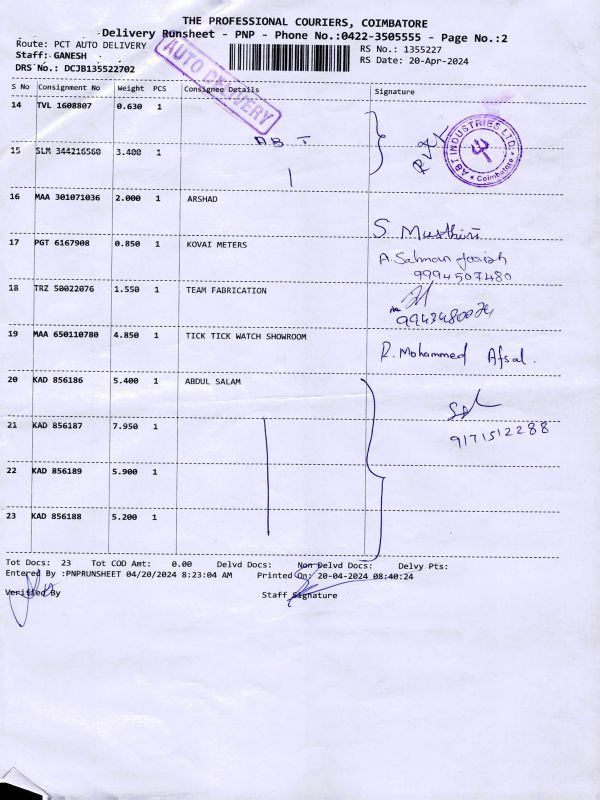 THE PROFESSIONAL COURIERS, COIMBATORE
Delivery Runsheet - PNP - Phone No.:0422-3505555 - Page No.:2
Route: PCT AUTO DELIVERY
RS No.: 1355227
Staff: GANESH
RS Date: 20-Apr-2024
DRS No.: DCJB135522702
AUTO DELIVERY
S No Consignment No Weight PCS Consignee Details Signature
14 TVL 1608807 0.630 1
A B T
ABT INDUSTRIES LTD. Coimbatore
15 SLM 344216560 3.400 1
16 MAA 301071036 2.000 1 ARSHAD
17 PGT 6167908 0.850 1 KOVAI METERS
A. Salman
9994507480
18 TRZ 50022076 1.550 1 TEAM FABRICATION
19 MAA 650110780 4.850 1 TICK TICK WATCH SHOWROOM
R. Mohammed Afsal.
20 KAD 856186 5.400 1 ABDUL SALAM
9171512288
21 KAD 856187 7.950 1
22 KAD 856189 5.900 1
23 KAD 856188 5.200 1
Tot Docs: 23 Tot COD Amt: 0.00 Delvd Docs: Non Delvd Docs: Delvy Pts:
Entered By :PNPRUNSHEET 04/20/2024 8:23:04 AM Printed On: 20-04-2024 08:40:24
Verified By Staff Signature